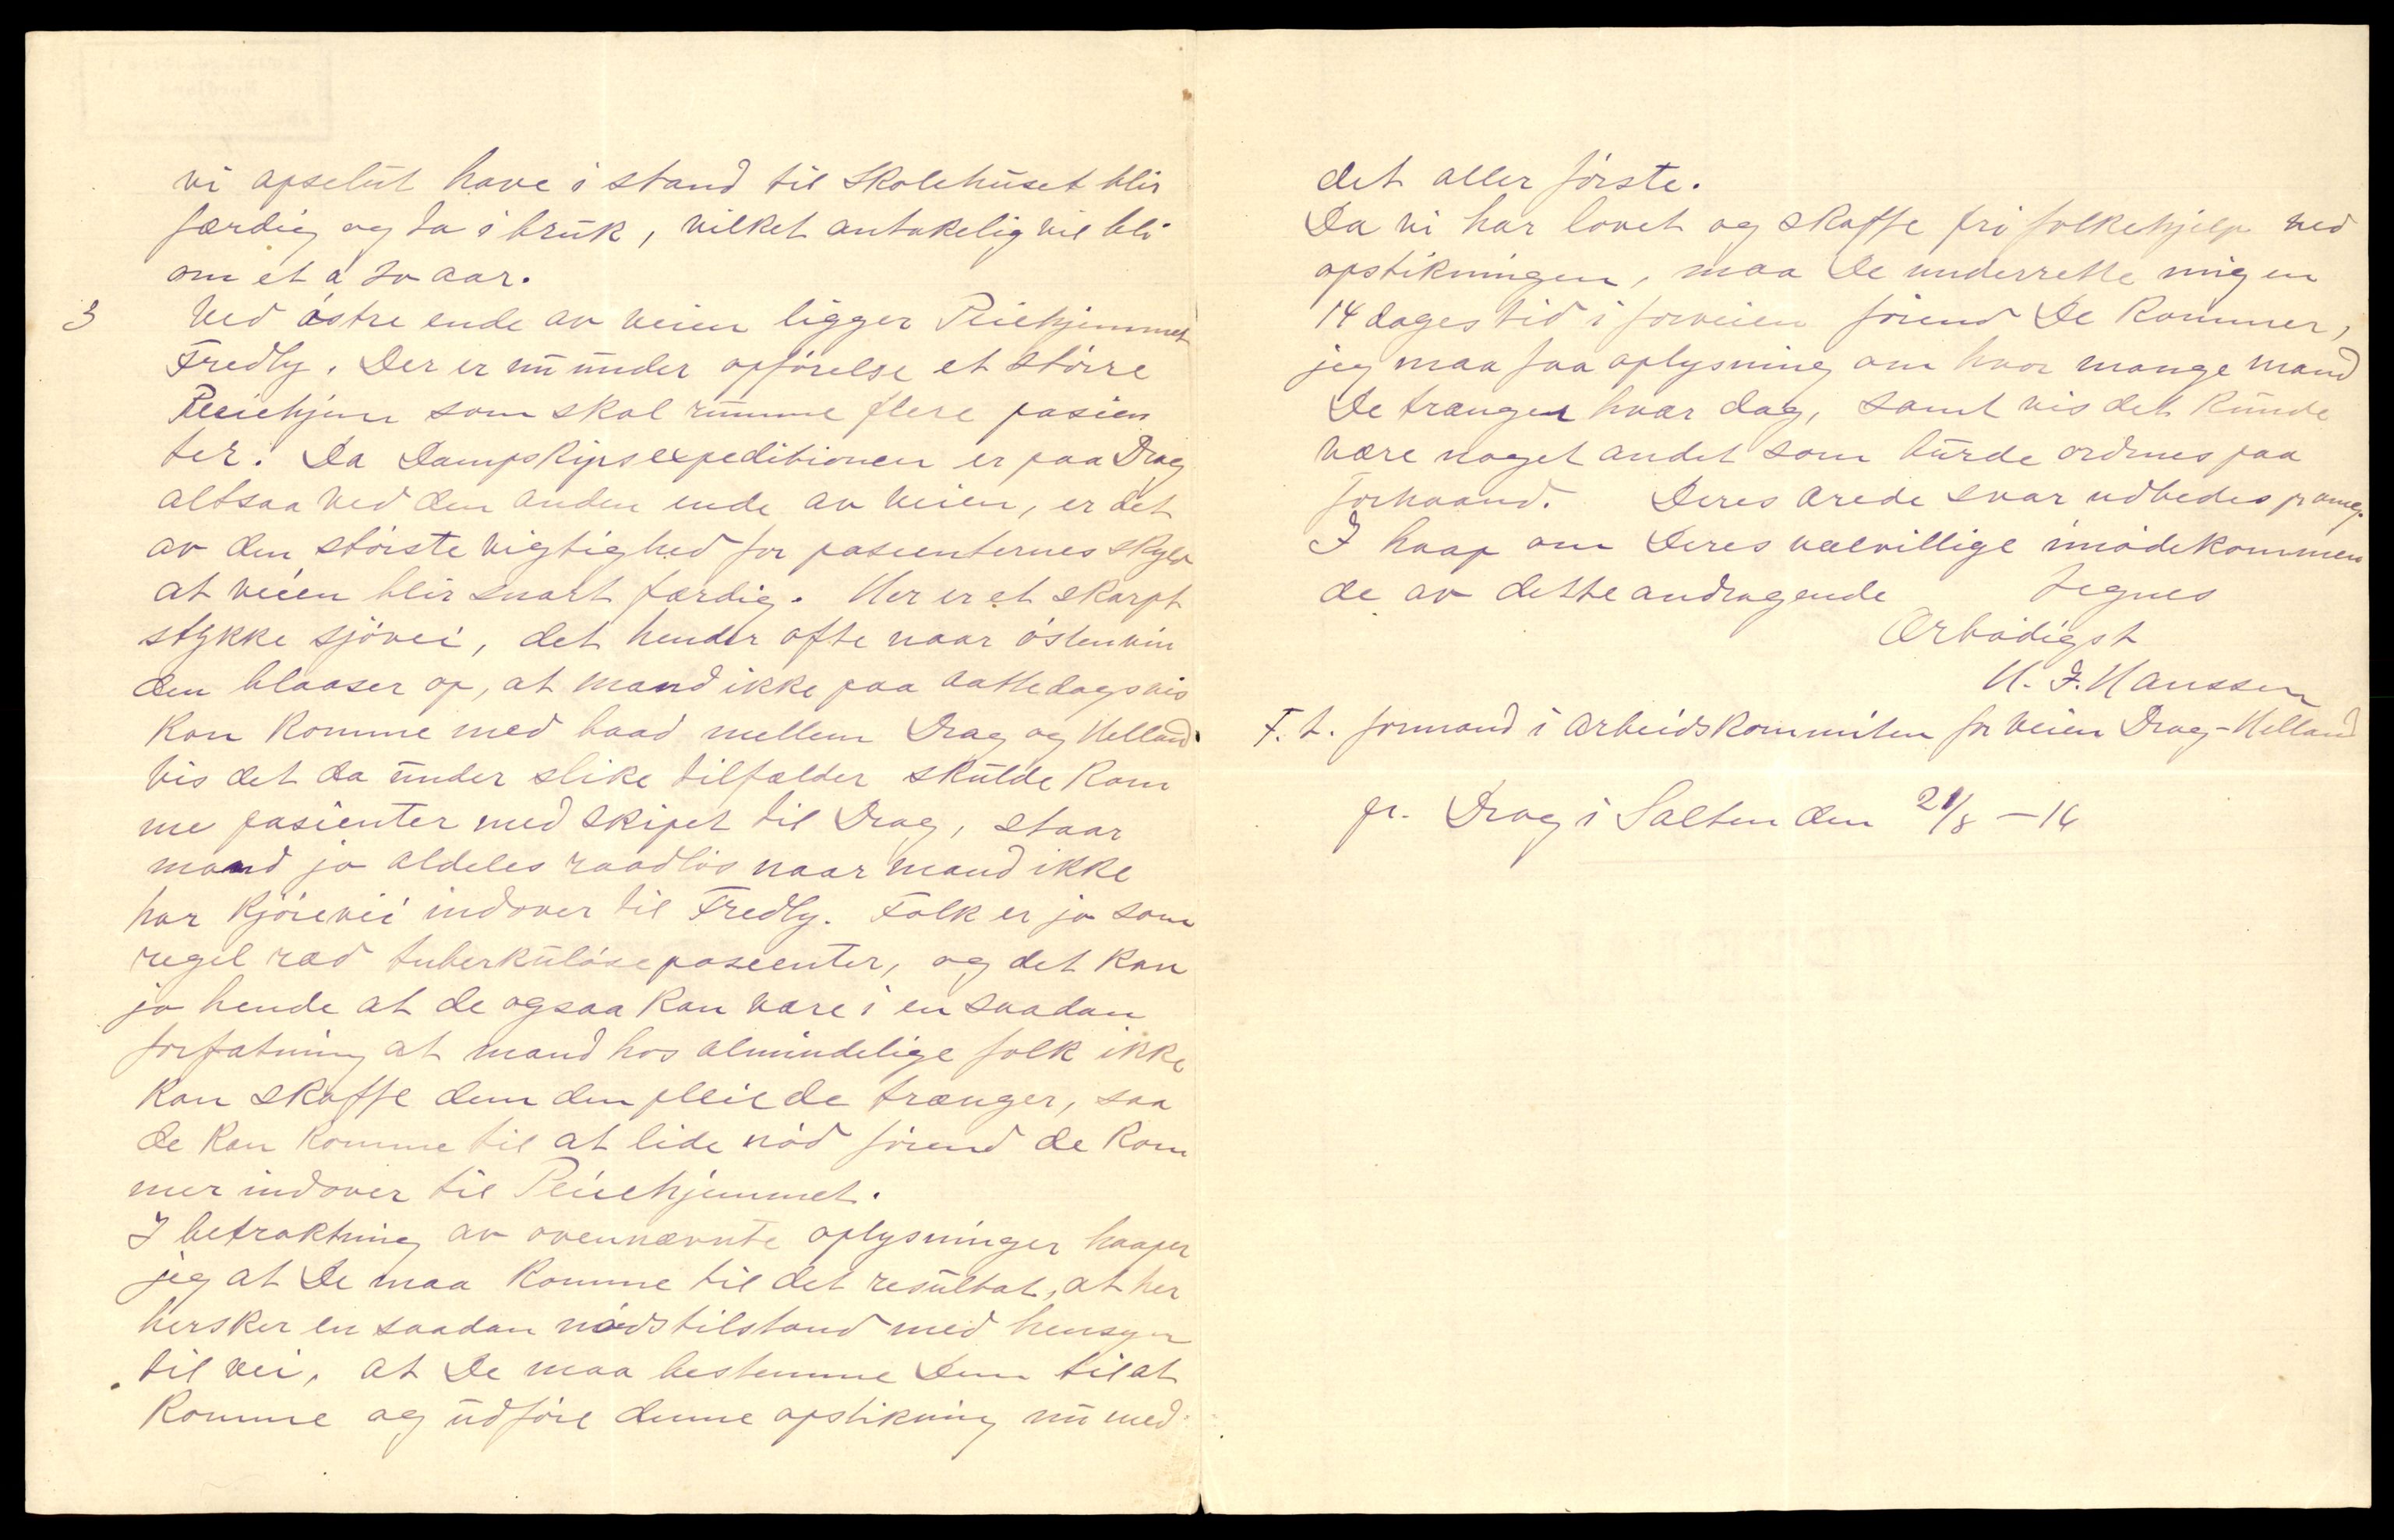 vi apselut have i stand til skolehuset blir
færdig og ta i bruk, vilket antakelig vil bli
om et a to aar.
3 Ved østre ende av veien ligger Pleiehjemmet
Fredly. Der er nu under opførelse et større
Pleiehjem som skal rumme flere pasien
ter. Da Dampskipsexpeditionen er paa Drag
altsaa ved den anden ende av veien, er det
av den største vigtighed for pasienternes skyld
at veien blir snart færdig. Her er et skarpt
stykke sjøvei, det hender ofte naar østenvin
den blaaser op, at mand ikke paa aattedagsvis
kan komme med baad mellem Drag og Helland.
Vis det da under slike tilfælder skulde kom
me pasienter med skipet til Drag, staar
mand jo aldeles raadløs naar mand ikke
har kjørevei indover til Fredly. Folk er jo som
regel ræd tuberkuløse pasienter, og det kan
jo hende at de ogsaa kan være i en saadan
forfatning at mand hos almindelige folk ikke
kan skaffe dem den pleie de trænger, saa
de kan komme til at lide nød førend de kom
mer indover til Pleiehjemmet.
I betraktning av ovennævnte oplysninger haaper
jeg at De maa komme til det resultat, at her
hersker en saadan nødstilstand med hensyn
til vei, at De maa bestemme Dem til at
komme og udføre denne opstikning nu med
det aller første.
Da vi har lovet og skaffe fri folkehjelp ved
opstikningen, maa De underrette mig en
14 dages tid i forveien førend De kommer,
jeg maa faa oplysning om hvor mange mand
De trænger hvær dag, samt vis det kunde
være noget andet som burde ordnes paa
forhaand. Deres ærede svar udbedes pr omg.
I haap om Deres velvillige imødekommen
de av dette andragende tegnes
Ærbødigst
H. J. Hanssen
F. t. formand i arbeidskommiten for veien Drag-Helland
pr. Drag i Salten den 21/8 - 16